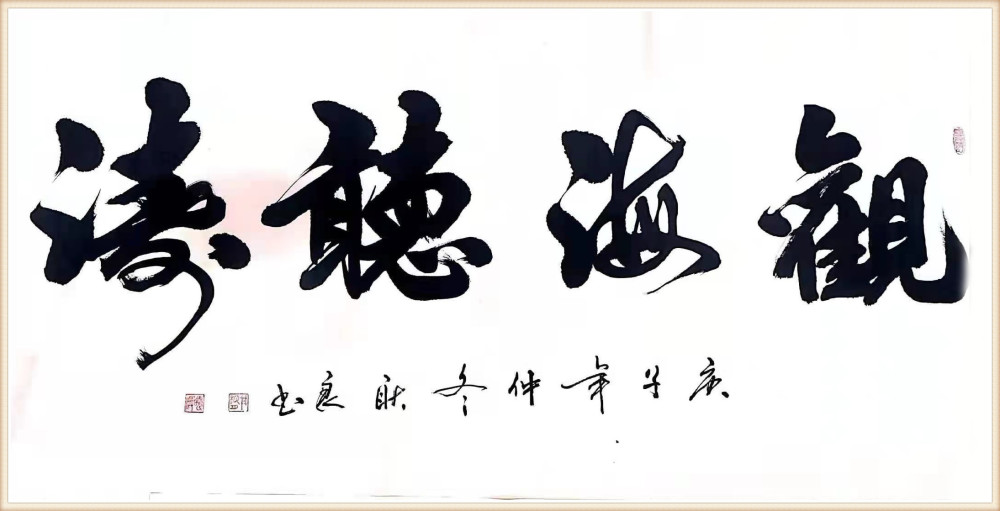 觀海聽濤
庚子年仲冬耿良书